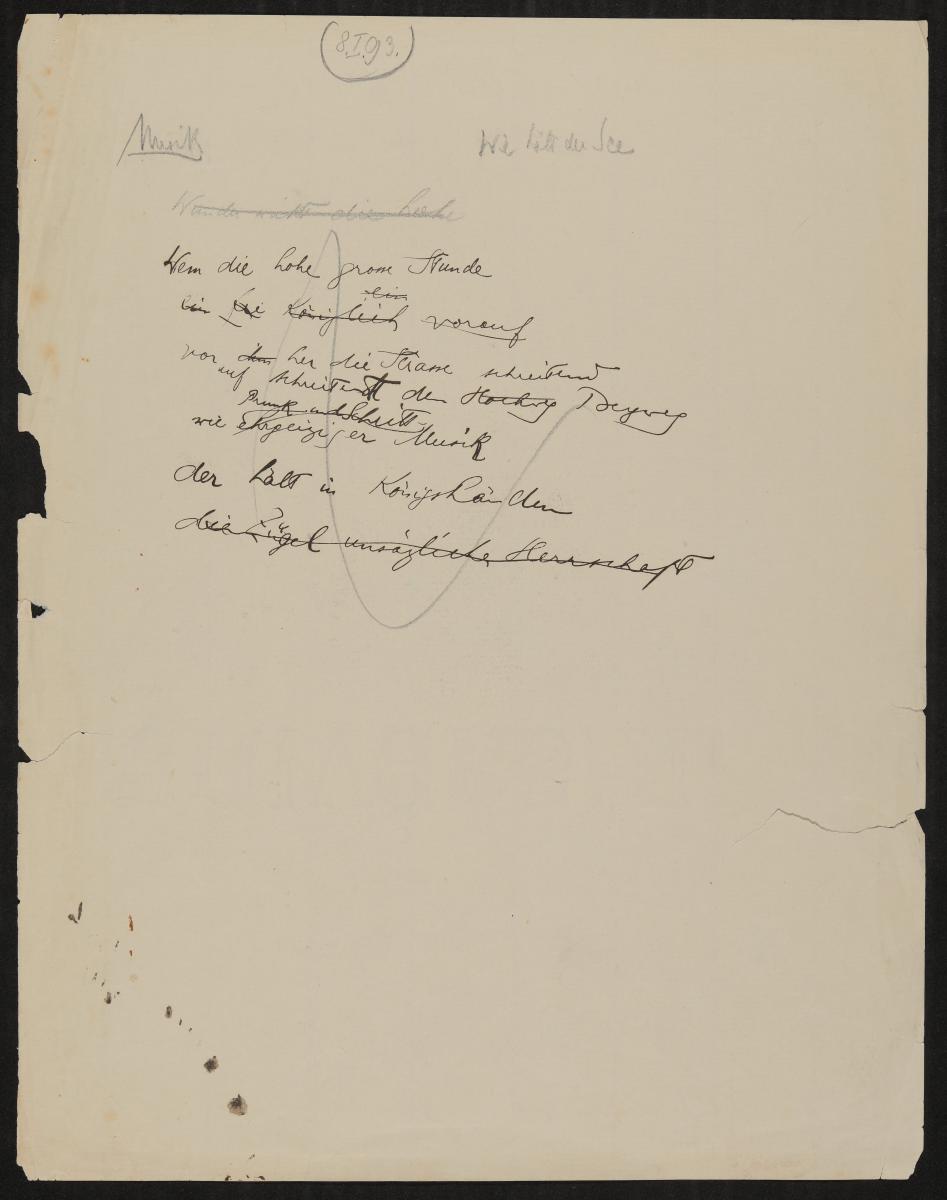 8.I.93.
Musik
Wie hält der See
Wem die hohe grosse Stunde
ein königlich ein vorauf
vor ihm her die Strasse schreitend
auf schreitet den Hochweg Bergweg
Prunk und Schritt
wie ehrgeiziger Musik
der hält in Königshänden
die Zügel unsäglicher Herrschaft